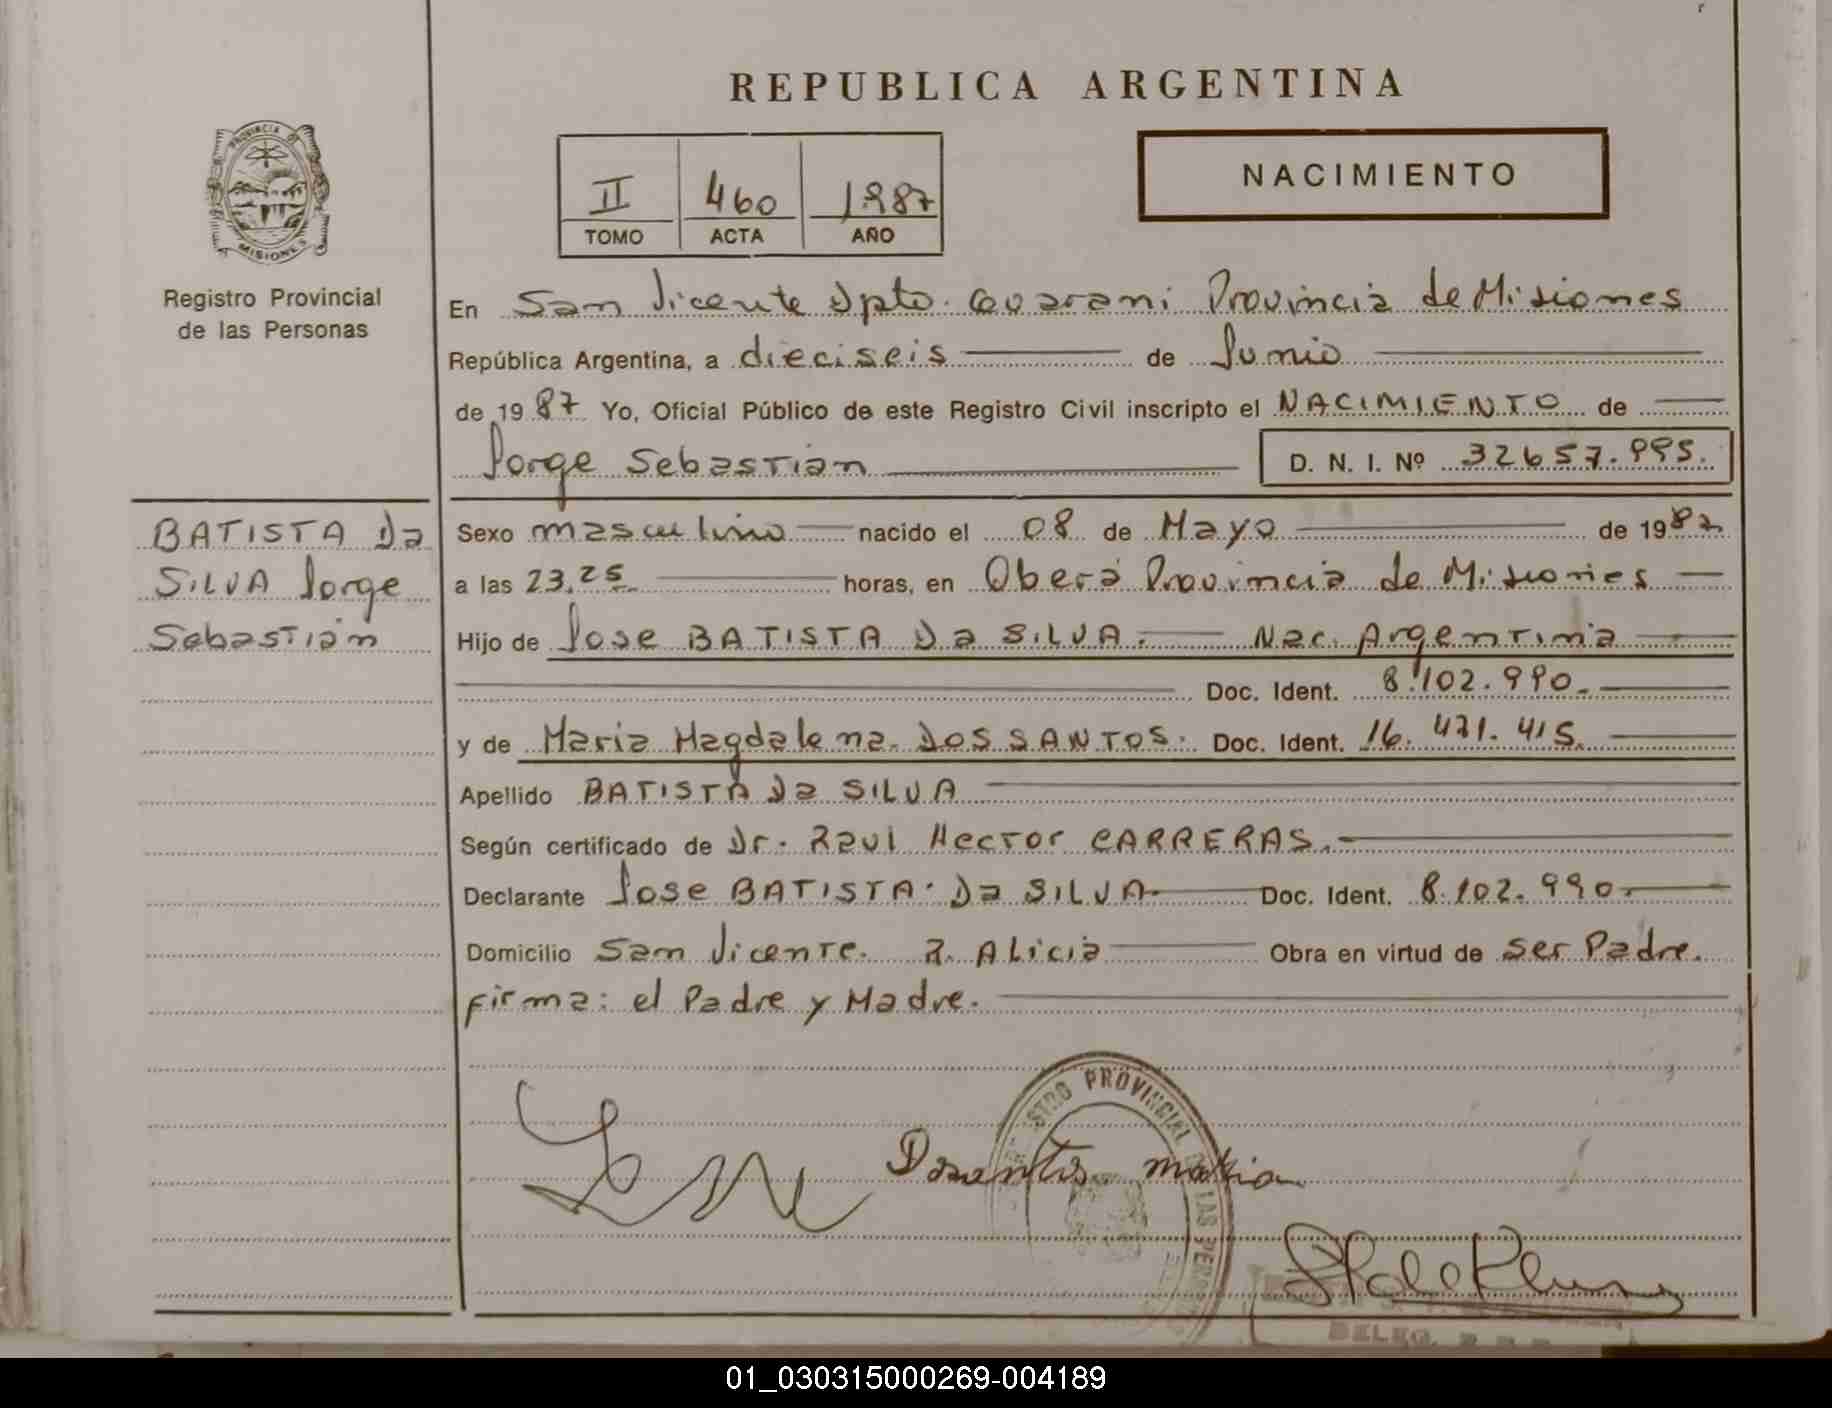 REPUBLICA ARGENTINA
PROVINCIA DE
MISIONES
Registro Provincial
de las Personas
II 460 1987
TOMO ACTA AÑO
NACIMIENTO
En San Vicente Dpto. Guarani Provincia de Misiones
República Argentina, a dieciseis de Junio
de 1987 Yo, Oficial Público de este Registro Civil inscripto el NACIMIENTO de
Jorge Sebastián D. N. I. Nº 32657.995.
BATISTA Da
SILVA Jorge
Sebastián
Sexo masculino nacido el 08 de Mayo de 1987
a las 23,25 horas, en Oberá Provincia de Misiones
Hijo de Jose BATISTA Da SILVA. Nac. Argentina
Doc. Ident. 8.102.990.
y de Maria Magdalena DOS SANTOS. Doc. Ident. 16.471.415.
Apellido BATISTA Da SILVA
Según certificado de Dr. Raul Hector CARRERAS.
Declarante Jose BATISTA Da SILVA Doc. Ident. 8.102.990
Domicilio San Vicente. Alicia Obra en virtud de ser Padre.
firma: el Padre y Madre.
PROVINCIAL
LAS
maria
DELEG.
01_030315000269-004189